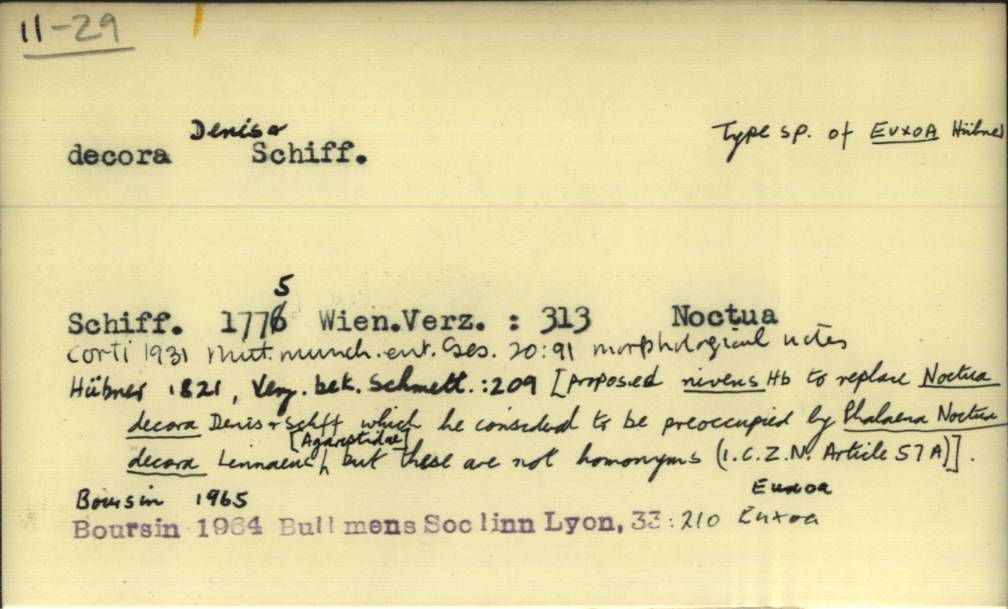 11-29
Denis &
decora Schiff. Type sp. of EUXOA Hübner
5
Schiff. 1776 Wien.Verz. : 313 Noctua
Corti 1931 Mitt. munch. ent. Ges. 20:91 morphological notes
Hübner 1821, Verz. bek. Schmett. :209 [proposed nivens Hb to replace Noctua
decora Denis & Schiff which he considered to be preoccupied by Phalaena Noctua
[Agaristidae]
decora Linnaeus, but these are not homonyms (I.C.Z.N. Article 57A)].
Boursin 1965 Euxoa
Boursin 1964 Bull mens Soc linn Lyon, 33:210 Euxoa